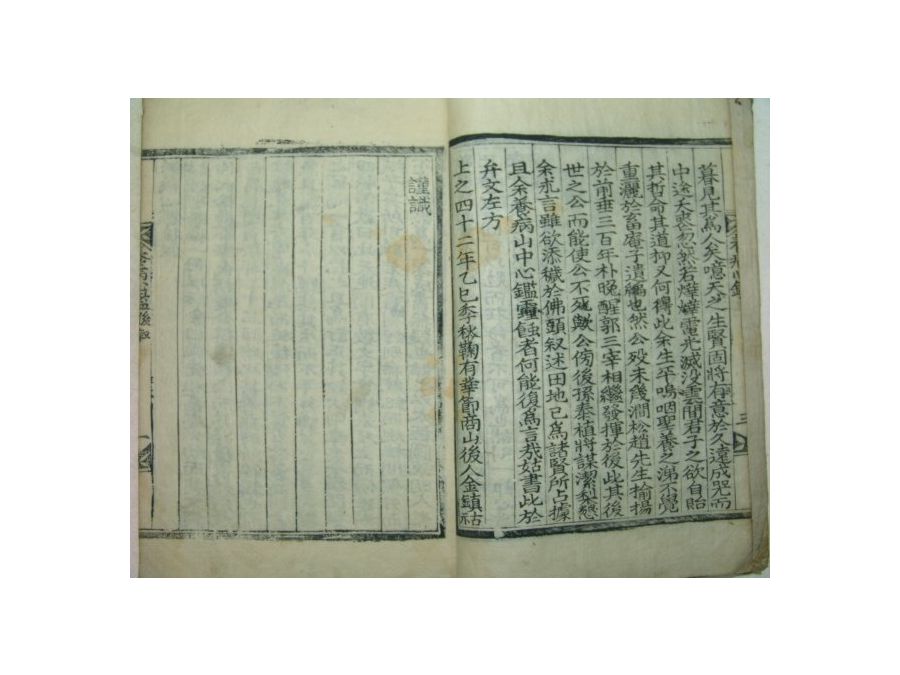 暮見其爲人矣噫天之生賢固將有意於久遠成就而
中途夭喪忽然若燁燁電光滅沒雲間君子之欲自貽
其哲命其道抑又何得此余生平嗚咽聖養之涕不覺
重灑於畜庵子遺編也然公歿未幾澗松趙先生揄揚
於前垂三百年朴晩醒郭三宰相繼發揮於後此其後
世之公而能使公不死歟公傍後孫泰植將謀潔梨懇
余求言雖欲添穢於佛頭叙述田地已爲諸賢所占據
且余養病山中心鑑靈蝕者何能復爲言哉姑書此於
弁文左方
上之四十二年乙巳季秋鞠有華節商山後人金鎭祜
謹識